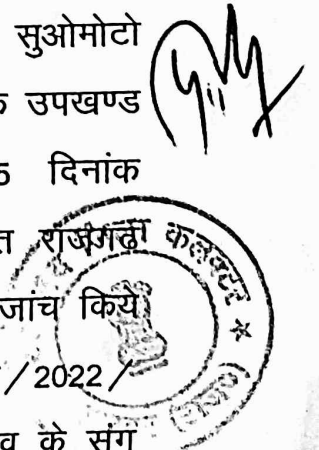 सुओमोटो
उपखण्ड
दिनांक
राजगढ
कलेक्टर
जांच किये
/2022/
व के संग